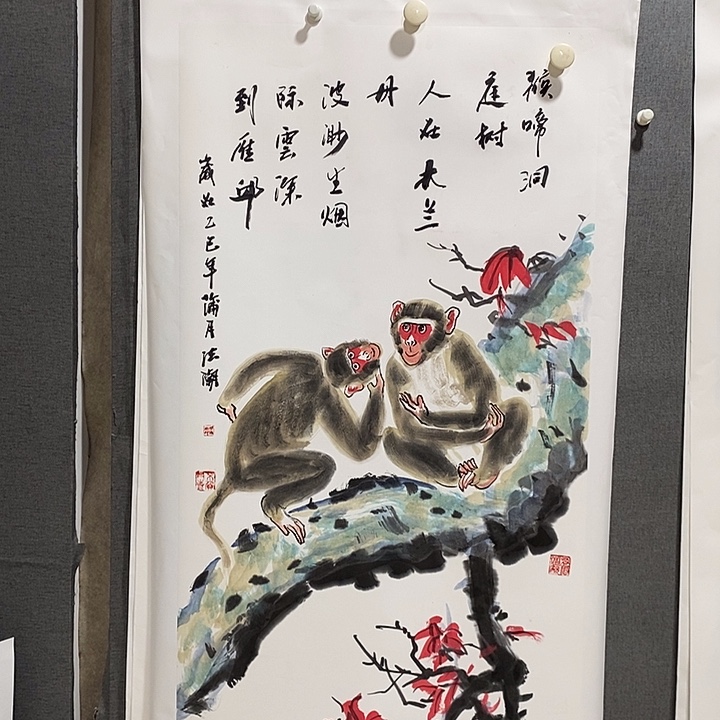 猴啼洞
庭树
人在木兰
丹
波渺生烟
际云深
到雁邱
岁次乙巳年蒲月法潮